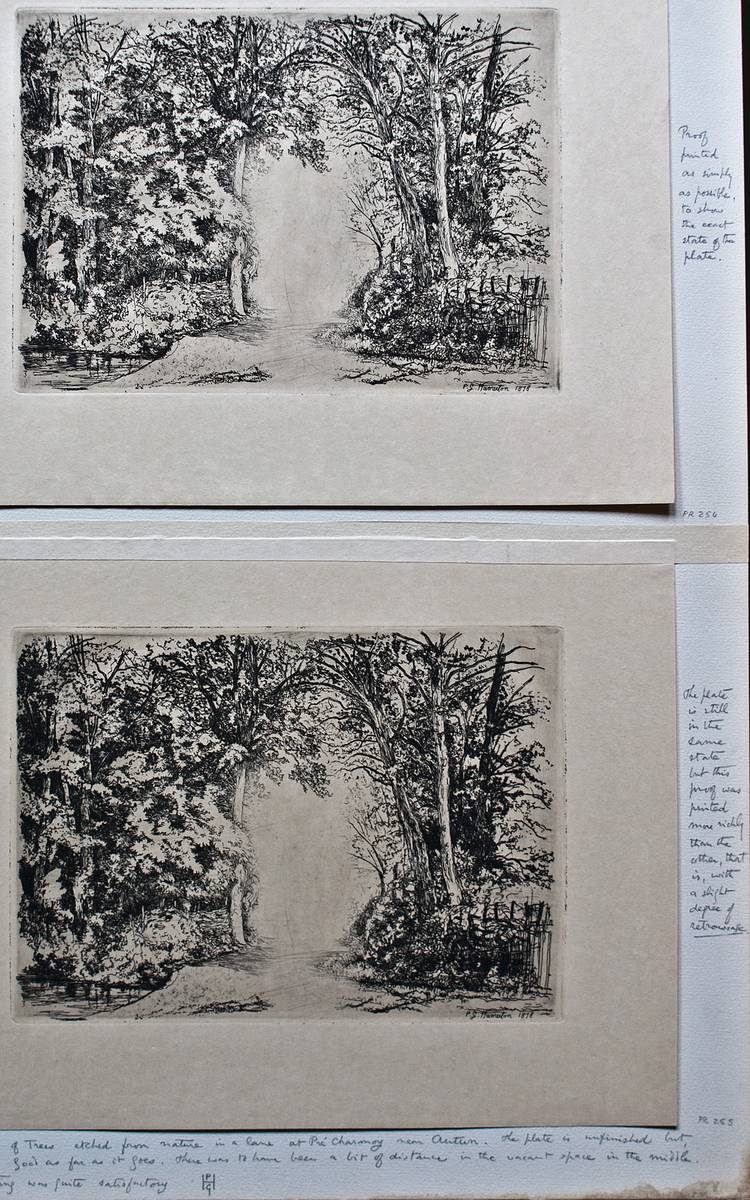 Proof
printed
as simply
as possible,
to show
the exact
state of the
plate.
P.G. Hamerton 1878
PR 254
The plate
is still
in the
same
state
but this
proof was
printed
more richly
than the
other, that
is, with
a slight
degree of
retroussage.
P.G. Hamerton 1878
PR 255
of Trees etched from nature in a lane at Pré Charmoy near Autun. The plate is unfinished but
good as far as it goes. There was to have been a bit of distance in the vacant space in the middle.
ing was quite satisfactory